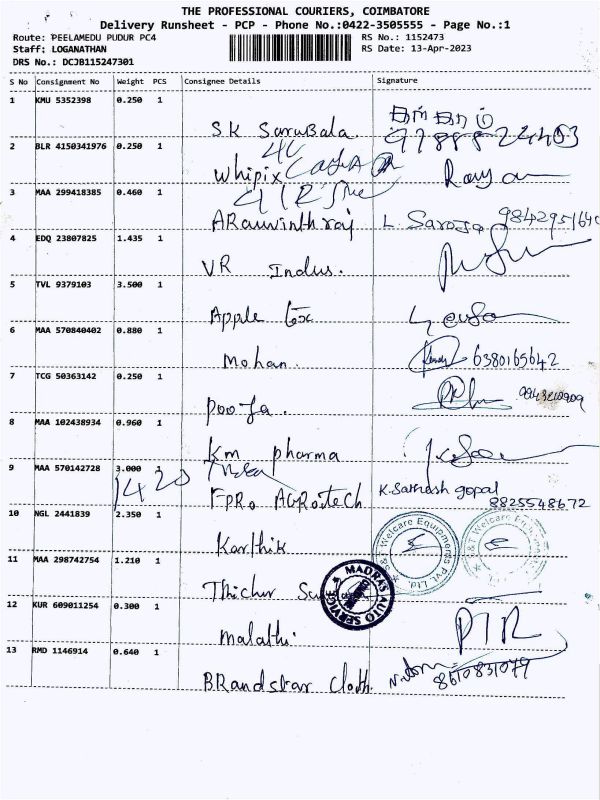 THE PROFESSIONAL COURIERS, COIMBATORE
Delivery Runsheet - PCP - Phone No.:0422-3505555 - Page No.:1
Route: PEELAMEDU PUDUR PC4 RS No.: 1152473
Staff: LOGANATHAN RS Date: 13-Apr-2023
DRS No.: DCJB115247301
S No Consignment No Weight PCS Consignee Details Signature
1 KMU 5352398 0.250 1
SK SaruBala
2 BLR 4150341976 0.250 1
Whipix
3 MAA 299418385 0.460 1
ARauvinthraj L. Saroja
4 EDQ 23807825 1.435 1
VR Indus.
5 TVL 9379103 3.500 1
Apple Tex
6 MAA 570840402 0.880 1
Mohan. 6380165642
7 TCG 50363142 0.250 1
Pooja.
8 MAA 102438934 0.960 1
Km pharma
9 MAA 570142728 3.000 1
1420
FPRO AGROtech K. Sathosh gopal
8825548672
10 NGL 2441839 2.350 1
Karthik
S&T Welcare Equipments Pvt. Ltd.
11 MAA 298742754 1.210 1
Thichur
MADRAS AUTO SERVICE
12 KUR 609011254 0.300 1
Malathi
13 RMD 1146914 0.640 1
BRandstar Cloth. 8610831079